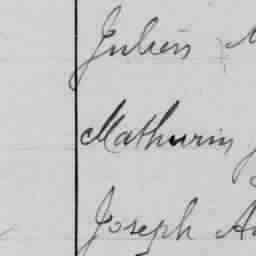 Julien
Mathurin
Joseph